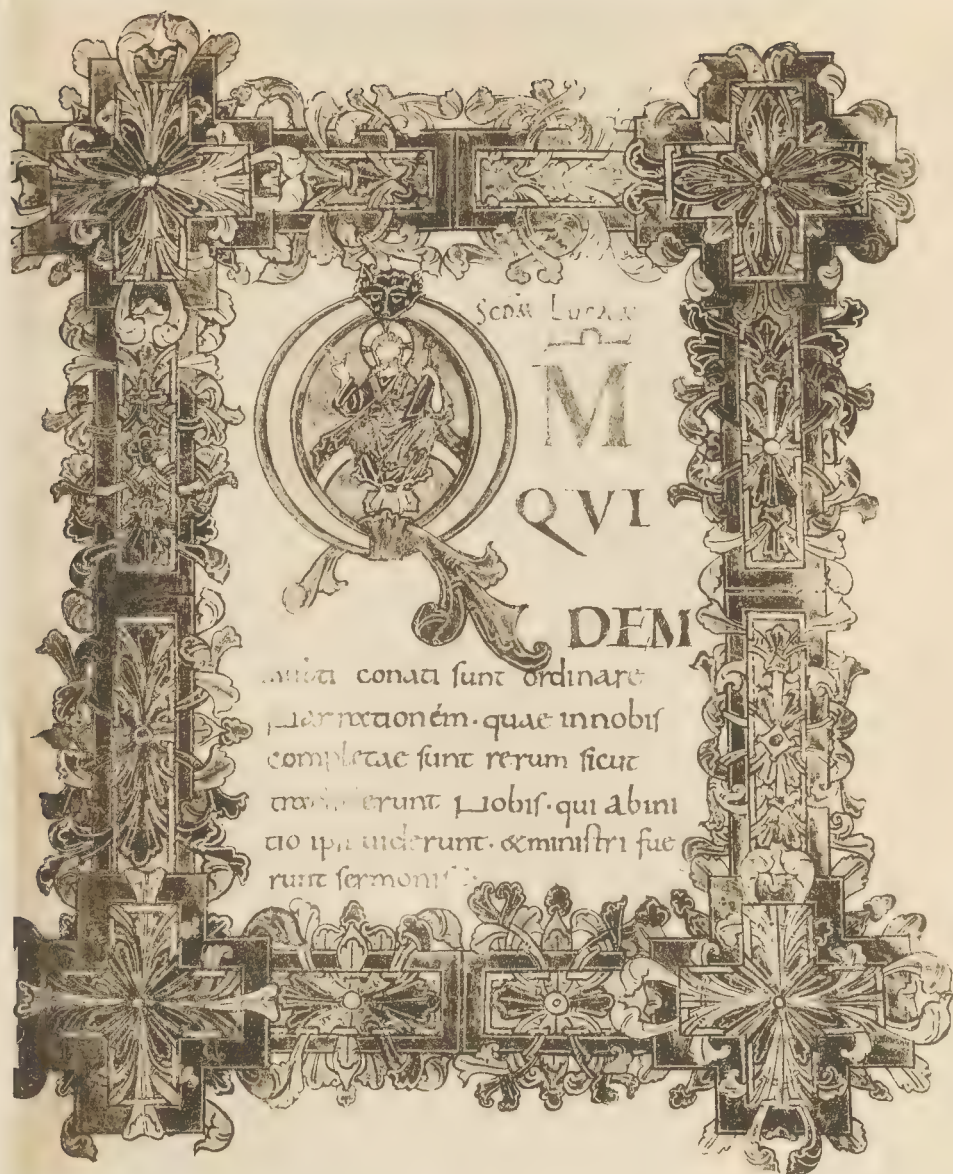 SCDM LUCAM
Q M
QVI
DEM
multi conati sunt ordinare
Narrationém · quae innobis
completae sunt rerum sicut
erunt Nobis · qui abini
tio ipsi uiderunt · &ministri fue
runt sermonis